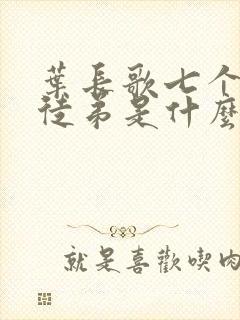 葉長歌七个
徒弟是什麼
就是喜歡喫肉